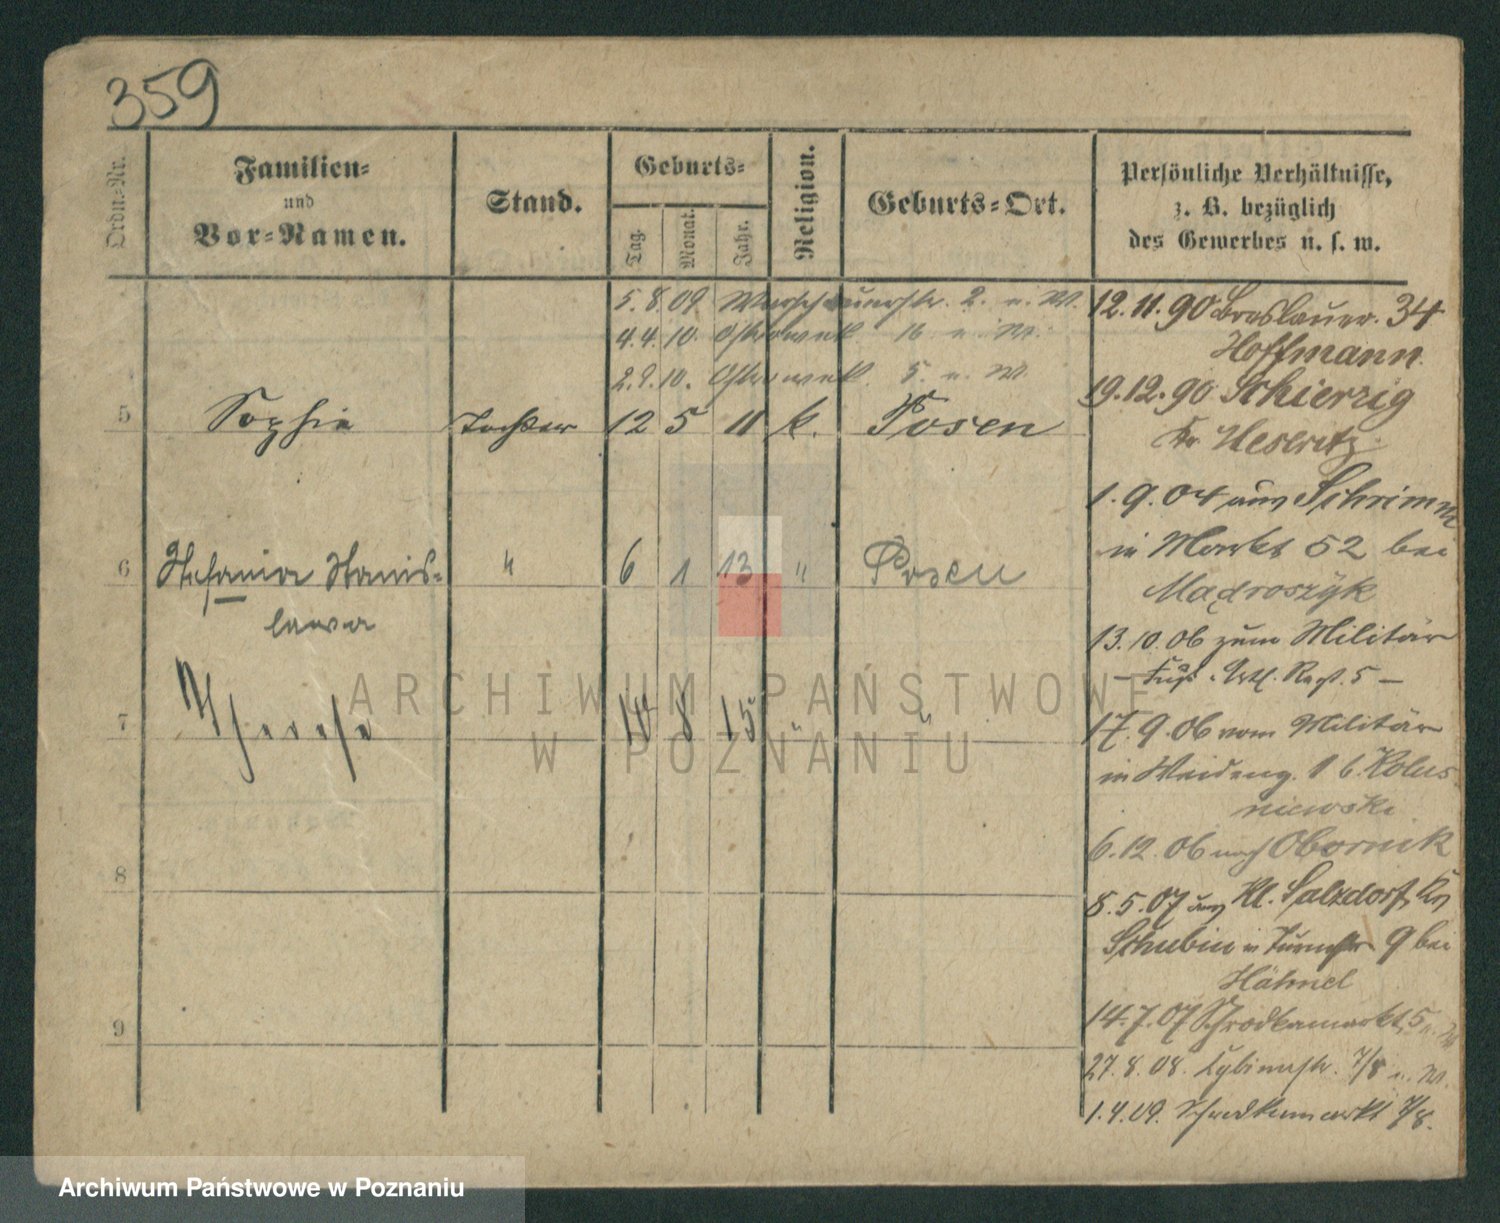 359
Ordn.-Nr.
Familien-
und
Vor-Namen.
Stand.
Geburts-
Tag.
Monat.
Jahr.
Religion.
Geburts-Ort.
Persönliche Verhältnisse,
z. B. bezüglich
des Gewerbes u. s. w.
5.8.09 Warschauerstr. 2. u. W.
4.4.10. Ostrowek 16 u. W.
2.9.10. Ostrowek 5. u. W.
5 Sophie Tochter 12 5 11 k. Posen
6 Stefania Stanis-
lawa
" 6 1 13 " Posen
7 Therese 18 8 15 " "
8
9
12.11.90 Breslauer. 34
Hoffmann
19.12.90 Schierzig
Kr Meseritz
1.9.04 aus Schrimm
in Markt 52 bei
Mądroszyk
13.10.06 zum Militär
– Fuß. Artl. Regt. 5 –
17.9.06 vom Militär
in Weideng. 1 b. Kolus
niewski
6.12.06 nach Obornik
8.5.07 aus Kl. Salzdorf Kr
Schubin in Turmstr 9 bei
Hähnel
14.7.07 Schrodkamarkt 5 u. W
27.8.08. Cybinastr. 7/8 u. W.
1.4.09. Schrodkamarkt 7/8.
ARCHIWUM PAŃSTWOWE
W POZNANIU
Archiwum Państwowe w Poznaniu